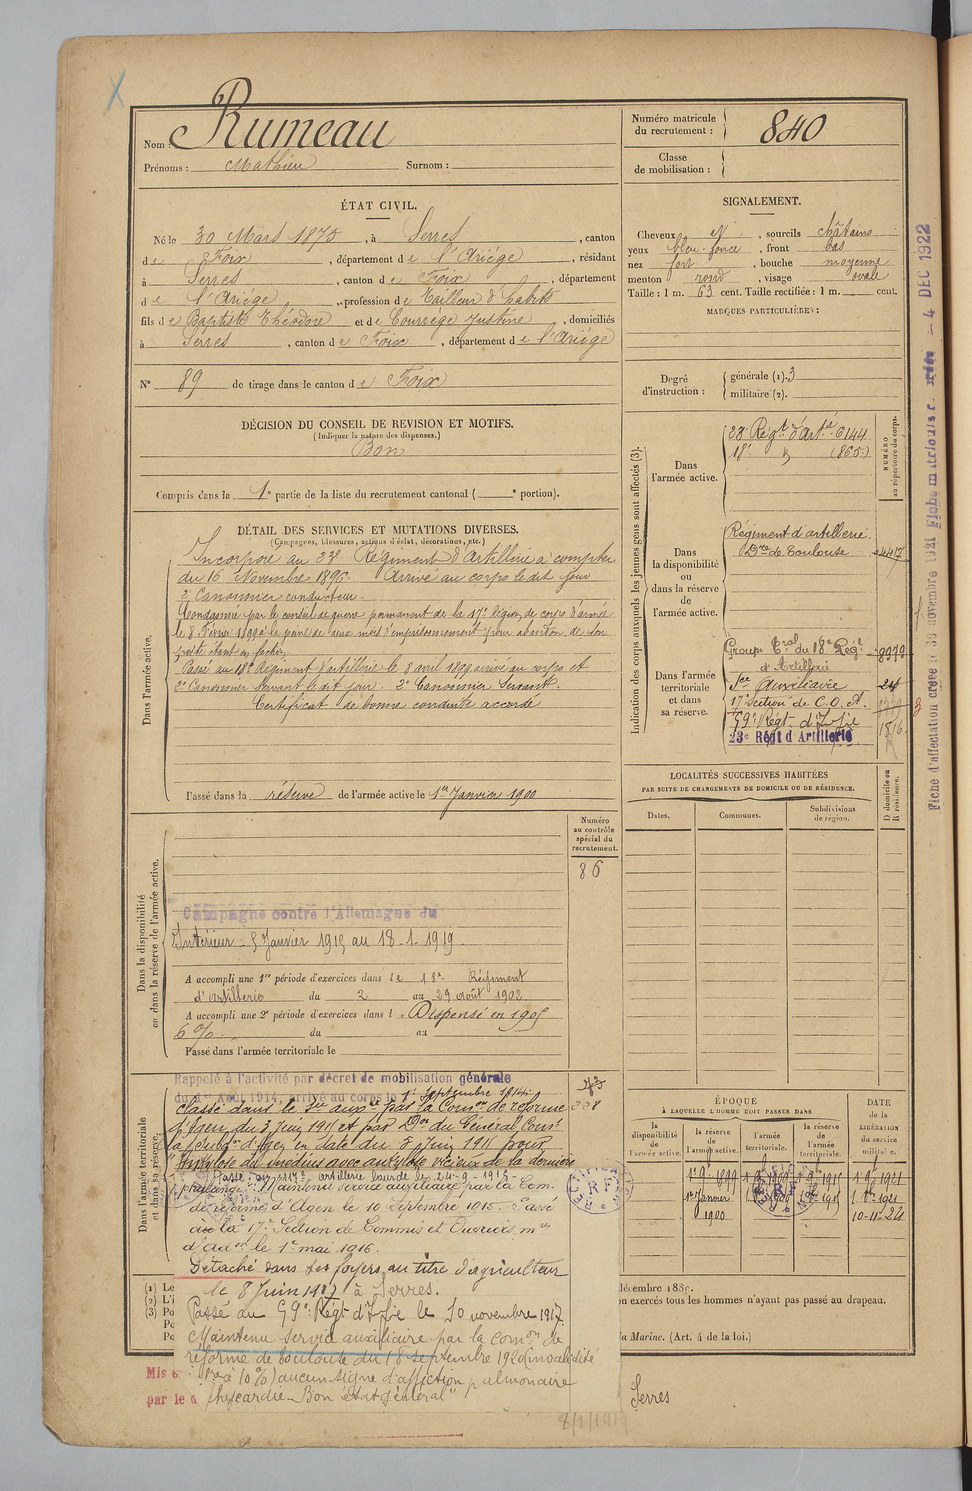 Nom : Rumeau
Prénoms : Mathieu Surnom :
Numéro matricule du recrutement : 840
Classe de mobilisation :
ÉTAT CIVIL.
Né le 30 Mars 1875, à Serres, canton
de Foix, département de l'Ariège, résidant
à Serres, canton de Foix, département
de l'Ariège, profession de Tailleur d'habits
fils de Baptiste Théodore et de Courrège Justine, domiciliés
à Serres, canton de Foix, département de l'Ariège
N° 89 de tirage dans le canton de Foix
SIGNALEMENT.
Cheveux et, sourcils châtains
yeux bleu foncé, front bas
nez fort, bouche moyenne
menton rond, visage ovale
Taille : 1 m. 63 cent. Taille rectifiée : 1 m. cent.
MARQUES PARTICULIÈRES :
Degré d'instruction : générale (1). 3
militaire (2).
DÉCISION DU CONSEIL DE REVISION ET MOTIFS.
(Indiquer la nature des dispenses.)
Bon
Compris dans la 1e partie de la liste du recrutement cantonal ( e portion).
DÉTAIL DES SERVICES ET MUTATIONS DIVERSES.
(Campagnes, blessures, actions d'éclat, décorations, etc.)
Dans l'armée active.
Incorporé au 23e Régiment d'Artillerie à compter
du 16 Novembre 1896. Arrivé au corps le dit jour
2e Canonnier conducteur.
Condamné par le conseil de guerre permanent de la 17e Région de corps d'armée
le 8 Février 1899 à la peine de deux mois d'emprisonnement pour abandon de son
poste étant en faction
Passé au 18e Régiment d'artillerie le 8 avril 1899 arrivé au corps et
2e Canonnier Servant le dit jour. 2e Canonnier Servant.
Certificat de bonne conduite accordé
Passé dans la réserve de l'armée active le 1er Janvier 1900
Indication des corps auxquels les jeunes gens sont affectés (3).
NUMÉRO au répertoire du corps.
Dans l'armée active.
23e Régt d'Artie 6144
18e (865)
Dans la disponibilité ou dans la réserve de l'armée active.
Régiment d'artillerie
de Toulouse 4417
Dans l'armée territoriale et dans sa réserve.
Groupe Tal du 18e Régt 8979
d'Artillerie
Sce Auxiliaire 24
17e Section de C.O.A.
59e Régt d'Infie 1816
23e Régt d'Artillerie
Fiche d'affectation créée le 30 novembre 1921 Fiche matricule créée 4 DEC 1922
LOCALITÉS SUCCESSIVES HABITÉES
PAR SUITE DE CHANGEMENTS DE DOMICILE OU DE RÉSIDENCE.
Dates. Communes. Subdivisions de région. D domicile ou R résidence.
Numéro au contrôle spécial du recrutement.
86
Dans la disponibilité ou dans la réserve de l'armée active.
Campagne contre l'Allemagne du
Intérieur - 5 Janvier 1915 au 18-1-1919.
A accompli une 1re période d'exercices dans le 18e Régiment
d'artillerie du 2 au 29 août 1902
A accompli une 2e période d'exercices dans l Dispensé en 1905
6 % du au
Passé dans l'armée territoriale le
Dans l'armée territoriale et dans sa réserve.
Rappelé à l'activité par décret de mobilisation générale
du 1er Août 1914, arrivé au corps le 1r Septembre 1914.
Classé dans le Sce auxre par la Comon de réforme
d'Agen du 3 Juin 1915 et par Don du Général Comt
la Subdon d'Agen en date du 8 Juin 1915 pour
"Ankylose du médius avec ankylose vicieux de la dernière
phalange" Passé au 117e artillerie lourde le 24-9-1915
Maintenu service auxiliaire par la Com.
de réforme d'Agen le 10 Septembre 1915. Passé
à la 17e Section de Commis et Ouvriers mres
d'Adon le 1er mai 1916.
Détaché dans ses foyers au titre d'agriculteur
le 8 Juin 1917 à Serres.
Passé au 59e Régt d'Infie le 10 novembre 1917.
Maintenu service auxiliaire par la comon de
réforme de Toulouse du 18 septembre 1920 (invalidité
à 10%) aucun signe d'affection pulmonaire
"Bon état général"
ÉPOQUE
À LAQUELLE L'HOMME DOIT PASSER DANS
la disponibilité de l'armée active. la réserve de l'armée active. l'armée territoriale. la réserve de l'armée territoriale.
DATE de la LIBÉRATION du service militaire.
1er Janvier 1900
10-11-21
RF
décembre 1889.
on exercés tous les hommes n'ayant pas passé au drapeau.
la Marine. (Art. 4 de la loi.)
Serres
(1) Le
(2) L'i
(3) Po
Po
Po
Mis
par le